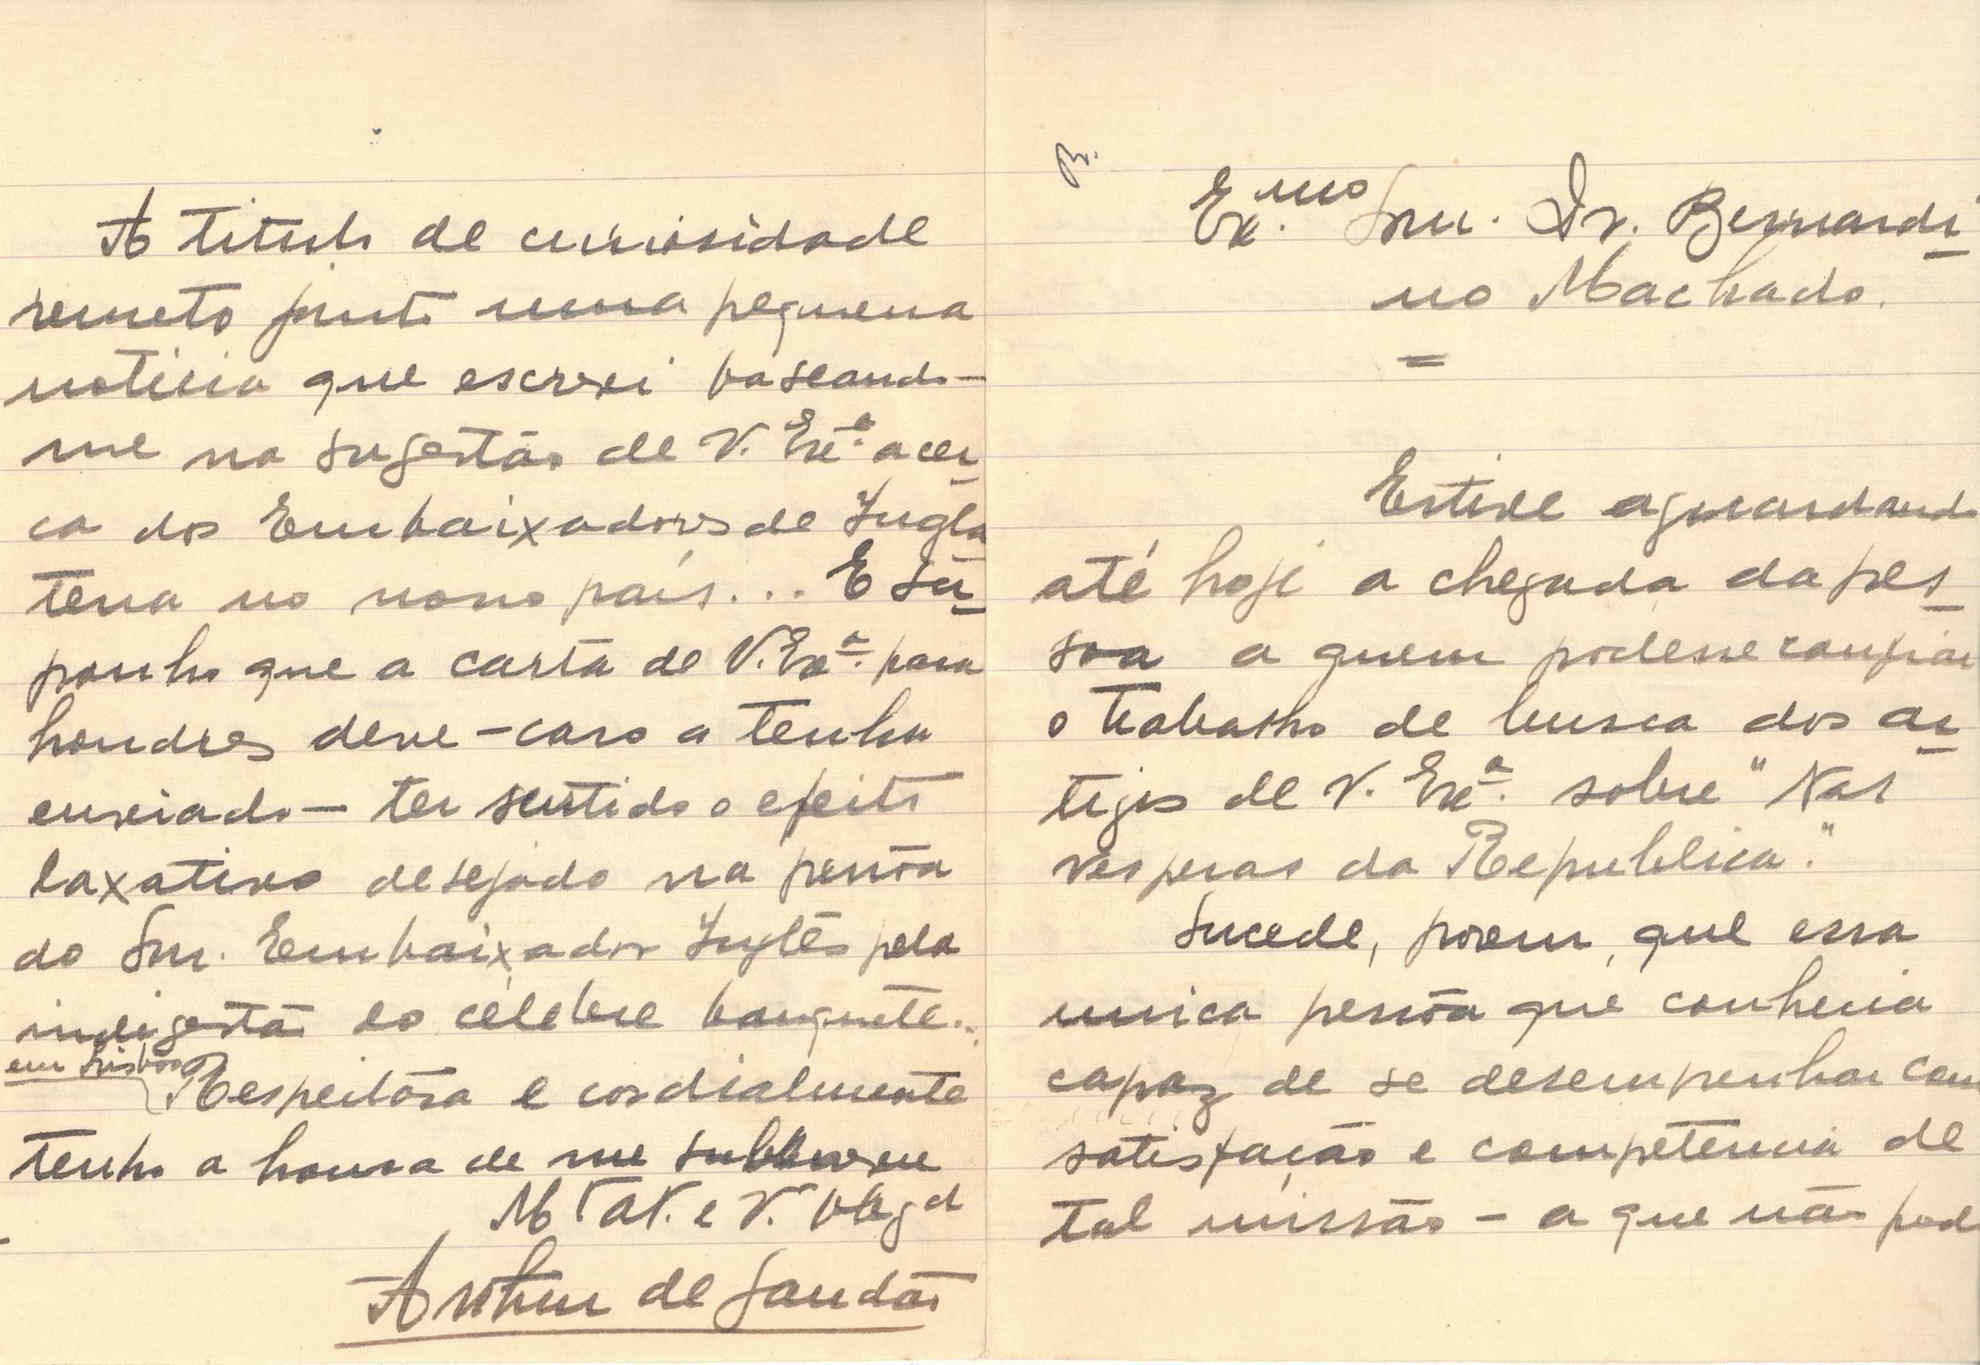 Ex.mo Snr. Dr. Bernardi
no Machado.
=
Estive aguardando
até hoje a chegada da pes
soa a quem podesse confiar
o trabalho de busca dos ar
tigos de V. Exª. sobre "Nas
vesperas da Republica."
Sucede, porem, que essa
unica pessôa que conhecia
capaz de se desempenhar com
satisfação e competencia de
tal missão – a que não pod
A titulo de curiosidade
remeto junto uma pequena
noticia que escrevi baseando-
me na sugestão de V. Exª. acer
ca dos Embaixadores de Ingla
terra no nosso país... E su
ponho que a carta de V. Exª. para
Londres deve – caso a tenha
enviado – ter sentido o efeito
laxativo desejado na pessôa
do Snr. Embaixador Inglês pela
indigestão do célebre banquete...
em Lisbôa
Respeitosa e cordialmente
tenho a honra de me subscrever
Mto At. e V. Obgd
Arthur de Sandão